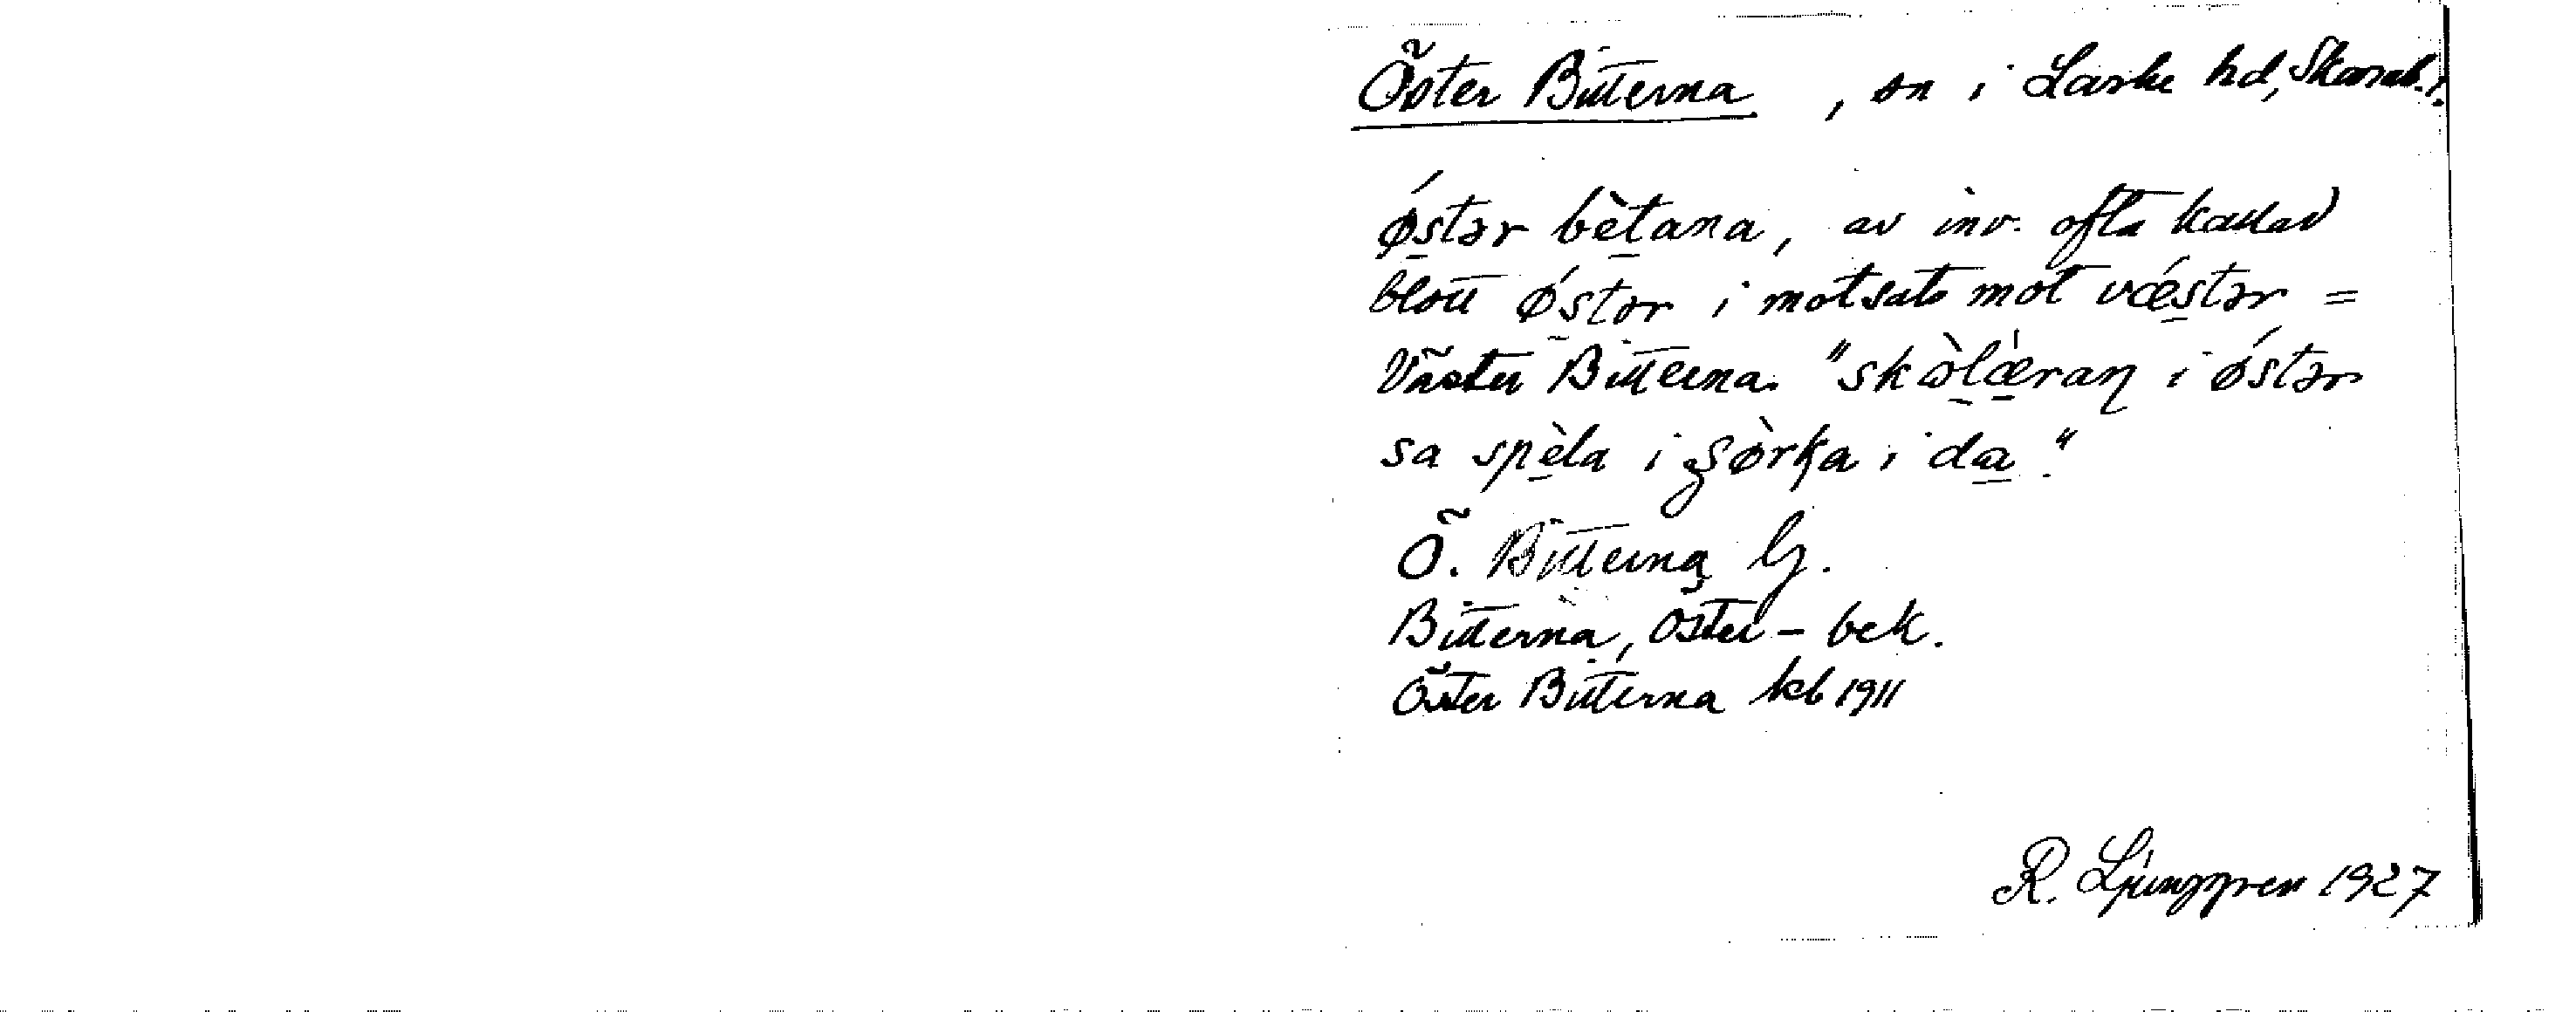 Öster Bitterna, sn i Laske hd, Skarab. l.
ǿstər bètana, av inv. ofta kallad
blott ǿstər i motsats mot vǽstər =
Väster Bitterna. "skòlæ̀raɳ i ǿstər
sa spèla i ʂørka i da."
Ö. Bitterna Gj.
Bitterna, Öster- bek.
Öster Bitterna kb 1911
R. Ljunggren 1927